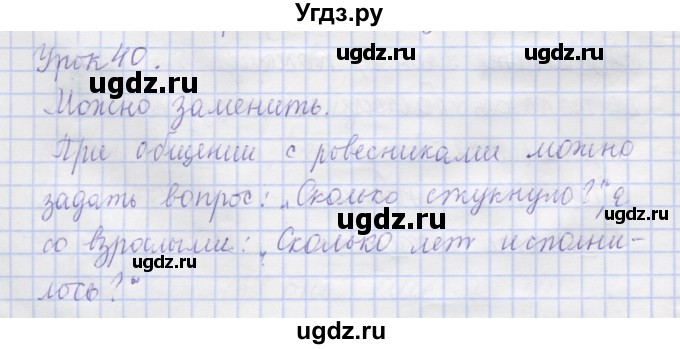 Угдз.ру
Урок 40.
ugdz.ru ugdz.ru ugdz.ru
Можно заменить.
При общении с ровесниками можно
ugdz.ru ugdz.ru
задать вопрос: „Сколько стукнуло?", а
со взрослыми: „Сколько лет исполни-
ugdz.ru ugdz.ru
лось?"
ugdz.ru